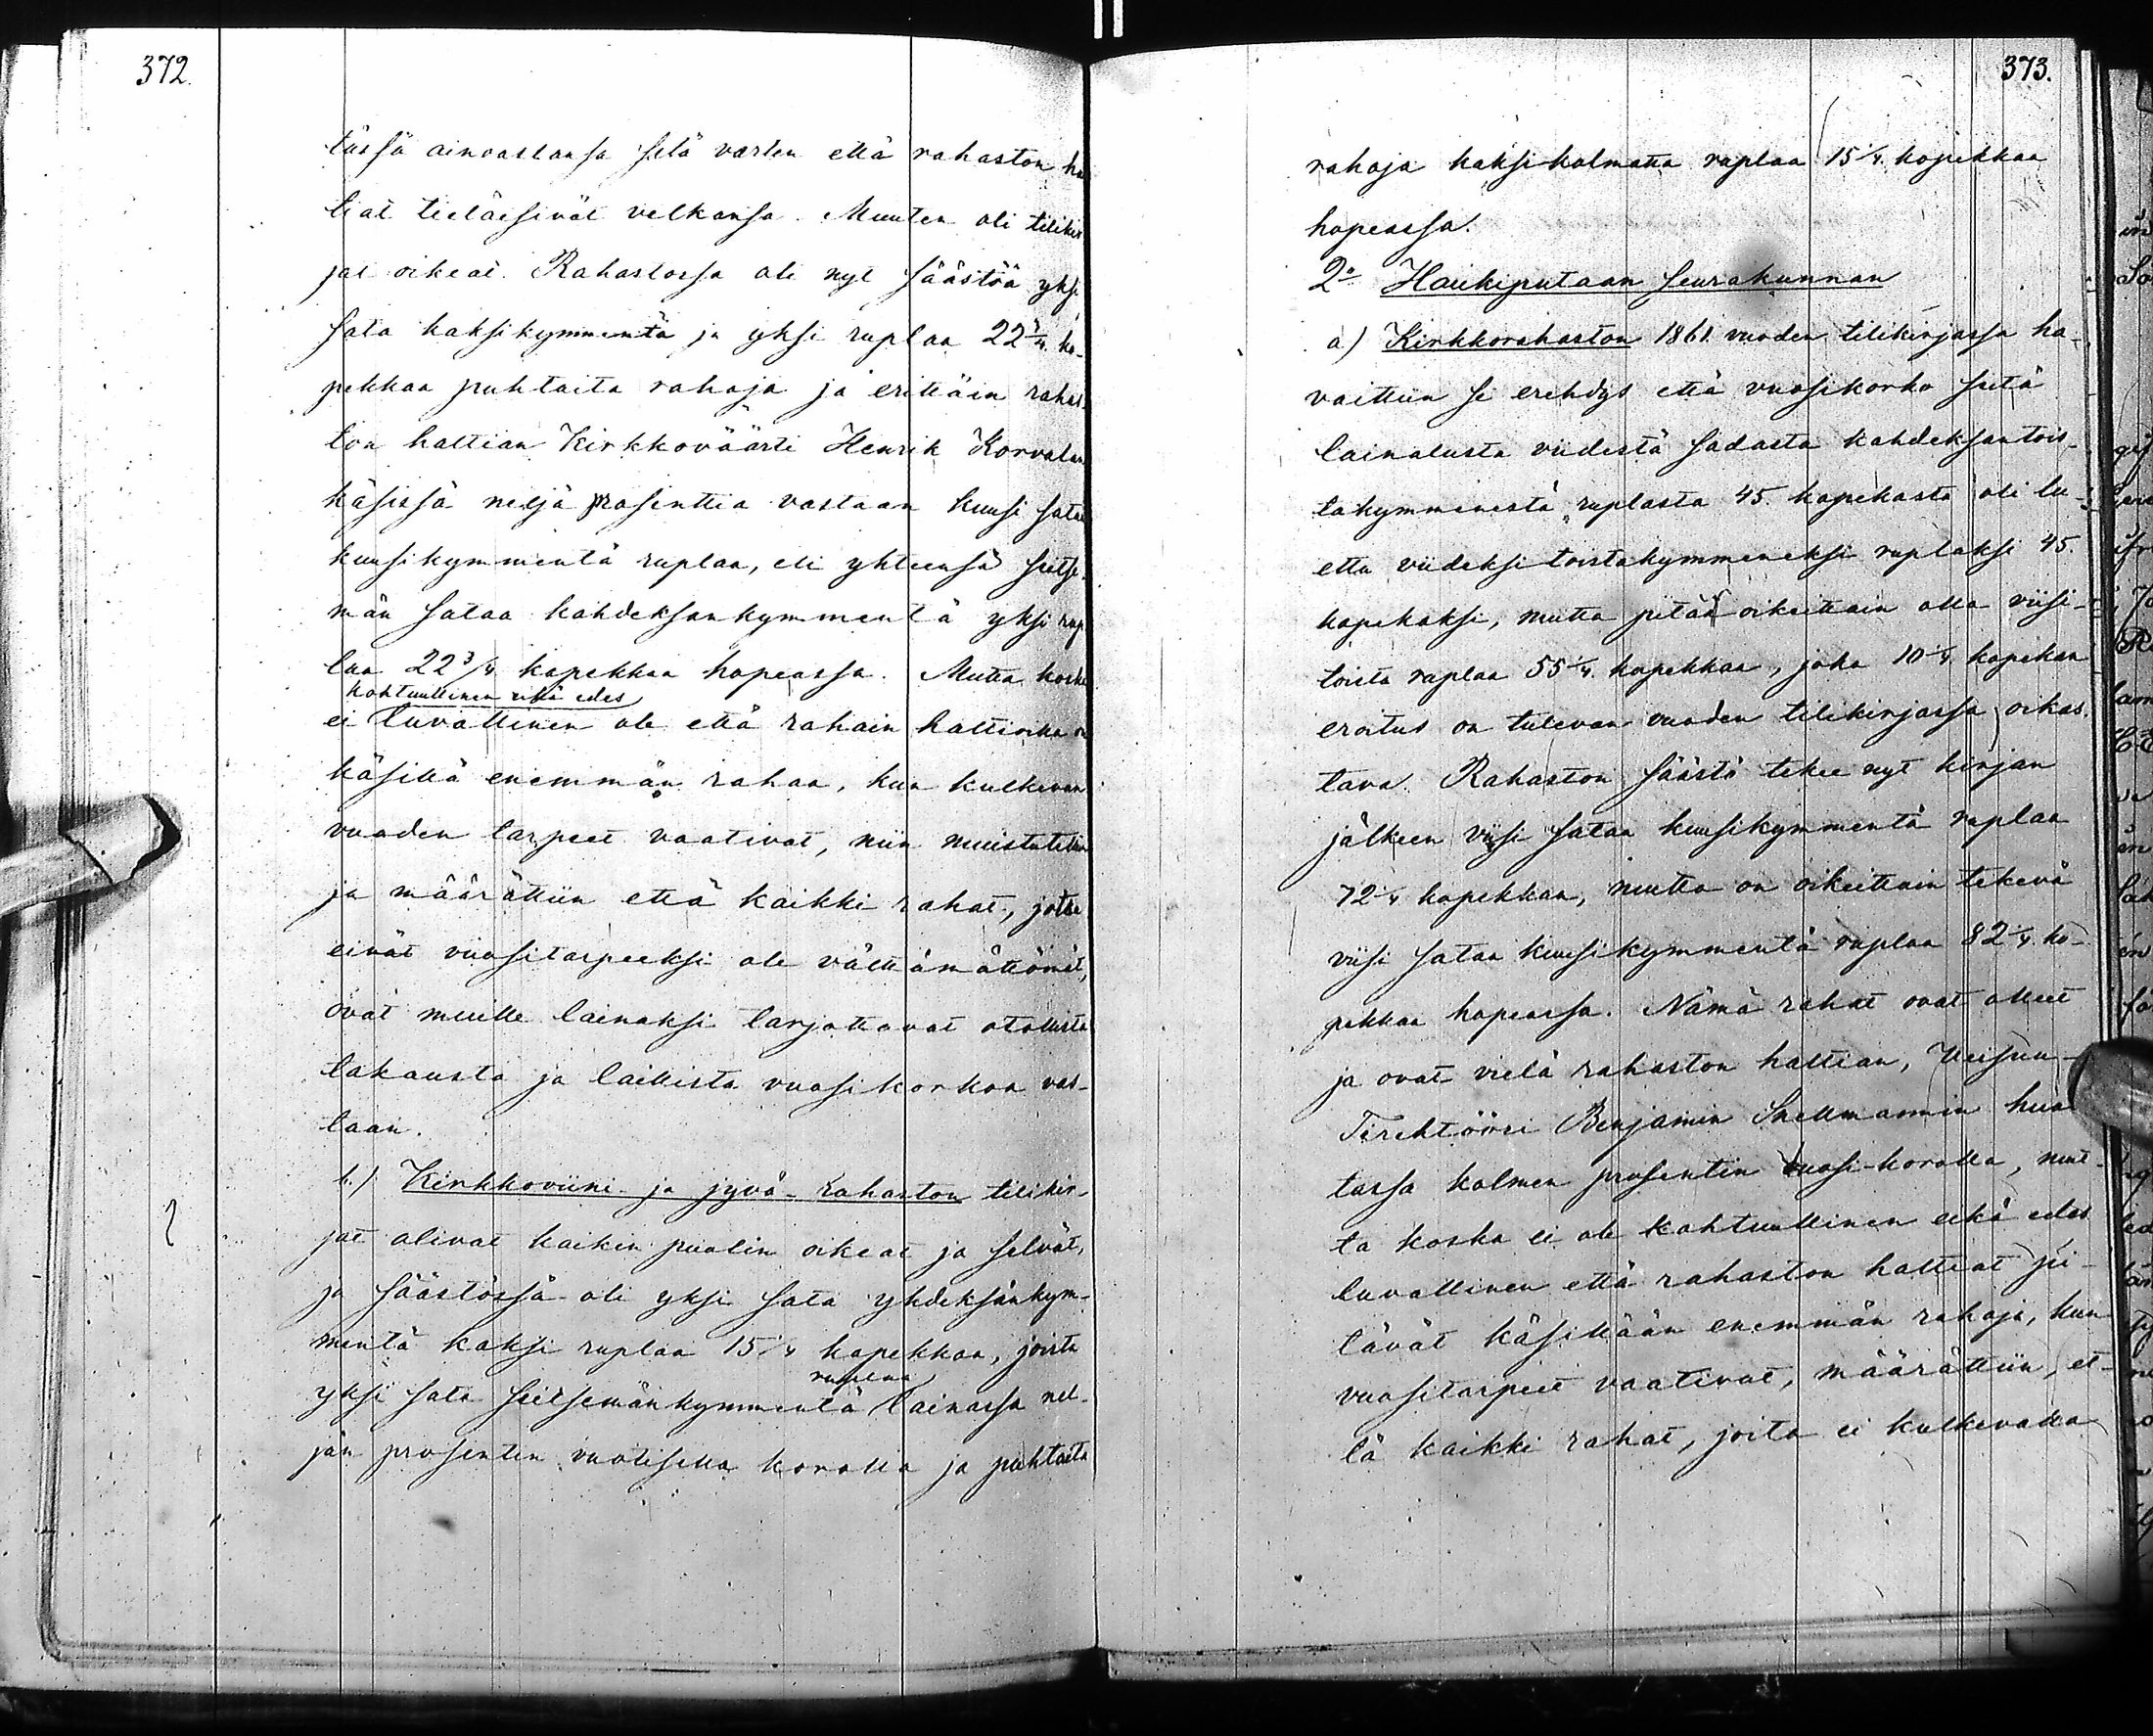 372.
tässä ainoastansa sitä varten että rahaston ha
tiat tietäisivät velkansa. Muuten oli tilikir
jat oikeat. Rahastossa oli nyt säästöä yksi
sata kaksikymmentä ja yksi ruplaa 22 3/4 ko-
pekkaa puhtaita rahoja ja erittäin rahas
ton haltian Kirkkoväärti Henrik Korvalan
käsissä neljä prosenttia vastaan kuusi sataa
kuusikymmentä ruplaa, eli yhteensä seitse-
män sataa kahdeksankymmentä yksi rup
laa 22 3/4 kopekkaa hopeassa. Mutta koska
kohtuullinen eikä edes
ei luvallinen ole että rahain haltioilla on
käsillä enemmän rahaa, kun kulkevan
vuoden tarpeet vaativat, niin muistutettiin
ja määrättiin että kaikki rahat, jotka
eivät vuositarpeeksi ole välttämättömät,
ovat muille lainaksi tarjottavat otollista
takausta ja laillista vuosikorkoa vas-
taan.
b.) Kirkkoviini- ja jyvä-rahaston tilikir-
jat olivat kaikin puolin oikeat ja selvät,
ja säästössä oli yksi sata yhdeksänkym-
mentä kaksi ruplaa 15 1/4 kopekkaa, joista
ruplaa
yksi sata seitsemänkymmentä lainassa nel-
jän prosentin vuotisella korolla ja puhtaita
373.
rahoja kaksikolmatta ruplaa 15 1/4 kopekkaa
hopeassa.
2o Haukiputaan Seurakunnan
a) Kirkkorahaston 1861 vuoden tilikirjassa ha-
vaittiin se erehdys että vuosikorko siitä
lainatusta viidestä sadasta kahdeksantois-
takymmenestä ruplasta 45 kopekasta oli lu-
ettu viideksitoistakymmeneksi ruplaksi 45
kopekaksi, mutta pitää oikeittain olla viisi-
toista ruplaa 55 1/4 kopekkaa, joka 10 1/4 kopekan
eroitus on tulevan vuoden tilikirjassa oikas-
tava. Rahaston säästö tekee nyt kirjan
jälkeen viisi sataa kuusikymmentä ruplaa
72 1/4 kopekkaa, mutta on oikeittain tekevä
viisi sataa kuusikymmentä ruplaa 82 1/4 ko-
pekkaa hopeassa. Nämä rahat ovat olleet
ja ovat vielä rahaston haltian,
Tirehtööri Benjamin Snellmannin huo
tassa kolmen prosentin vuosi-korolla, mut-
ta koska ei ole kohtuullinen eikä edes
luvallinen että rahaston haltiat pi-
tävät käsillään enemmän rahoja, kun
vuositarpeet vaativat, määrättiin, et-
tä kaikki rahat, joita ei kulkevalla